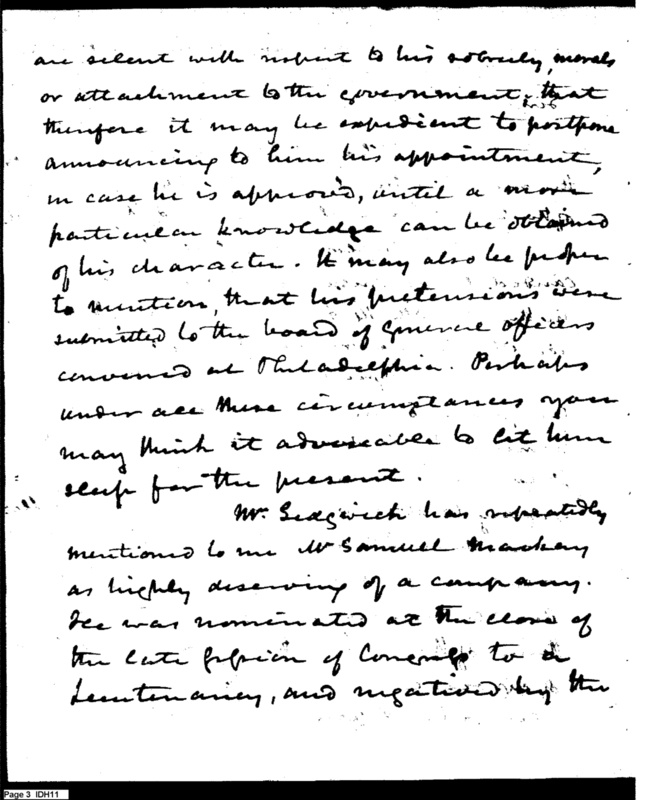 are silent with respect to his sobriety, morals
or attachment to the government, that
therefore it may be expedient to postpone
announcing to him his appointment,
in case he is approved, until a more
particular knowledge can be obtained
of his character. It may also be proper
to mention, that his pretensions were
submitted to the board of general officers
convened at Philadelphia. Perhaps
under all these circumstances you
may think it adviseable to let him
sleep for the present.
Mr. Sedgwick has repeatedly
mentioned to me Mr Samuel Mackay
as highly deserving of a company.
He was nominated at the close of
the late session of Congress to a
Lieutenancy, and negatived by the
Page 3 IDH11